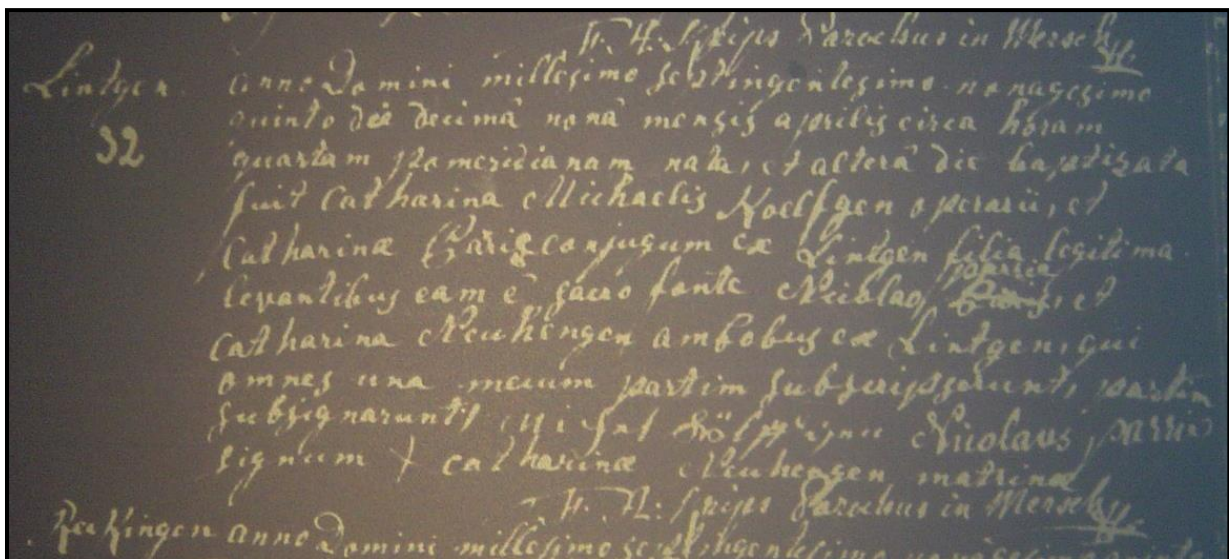 Parochus in Mersch
Lintgen. anno Domini millesimo septingentesimo nonagesimo
32 quinto die decimâ nonâ mensis aprilis circa horam
quartam pomeridianam nata, et alterâ die baptizata
fuit Catharina Michaelis Koelfgen operarii, et
Catharinæ Paris conjugum ex Lintgen filia legitima.
levantibus eam è sacro fonte Nicolao parris, et
catharina Neuhengen ambobus ex Lintgen, qui
omnes una mecum partim subscripserunt, partim
subsignarunt, Nicolaus parris
signum + catharinæ Neuhengen matrinæ
Parochus in Mersch
anno Domini millesimo septingentesimo